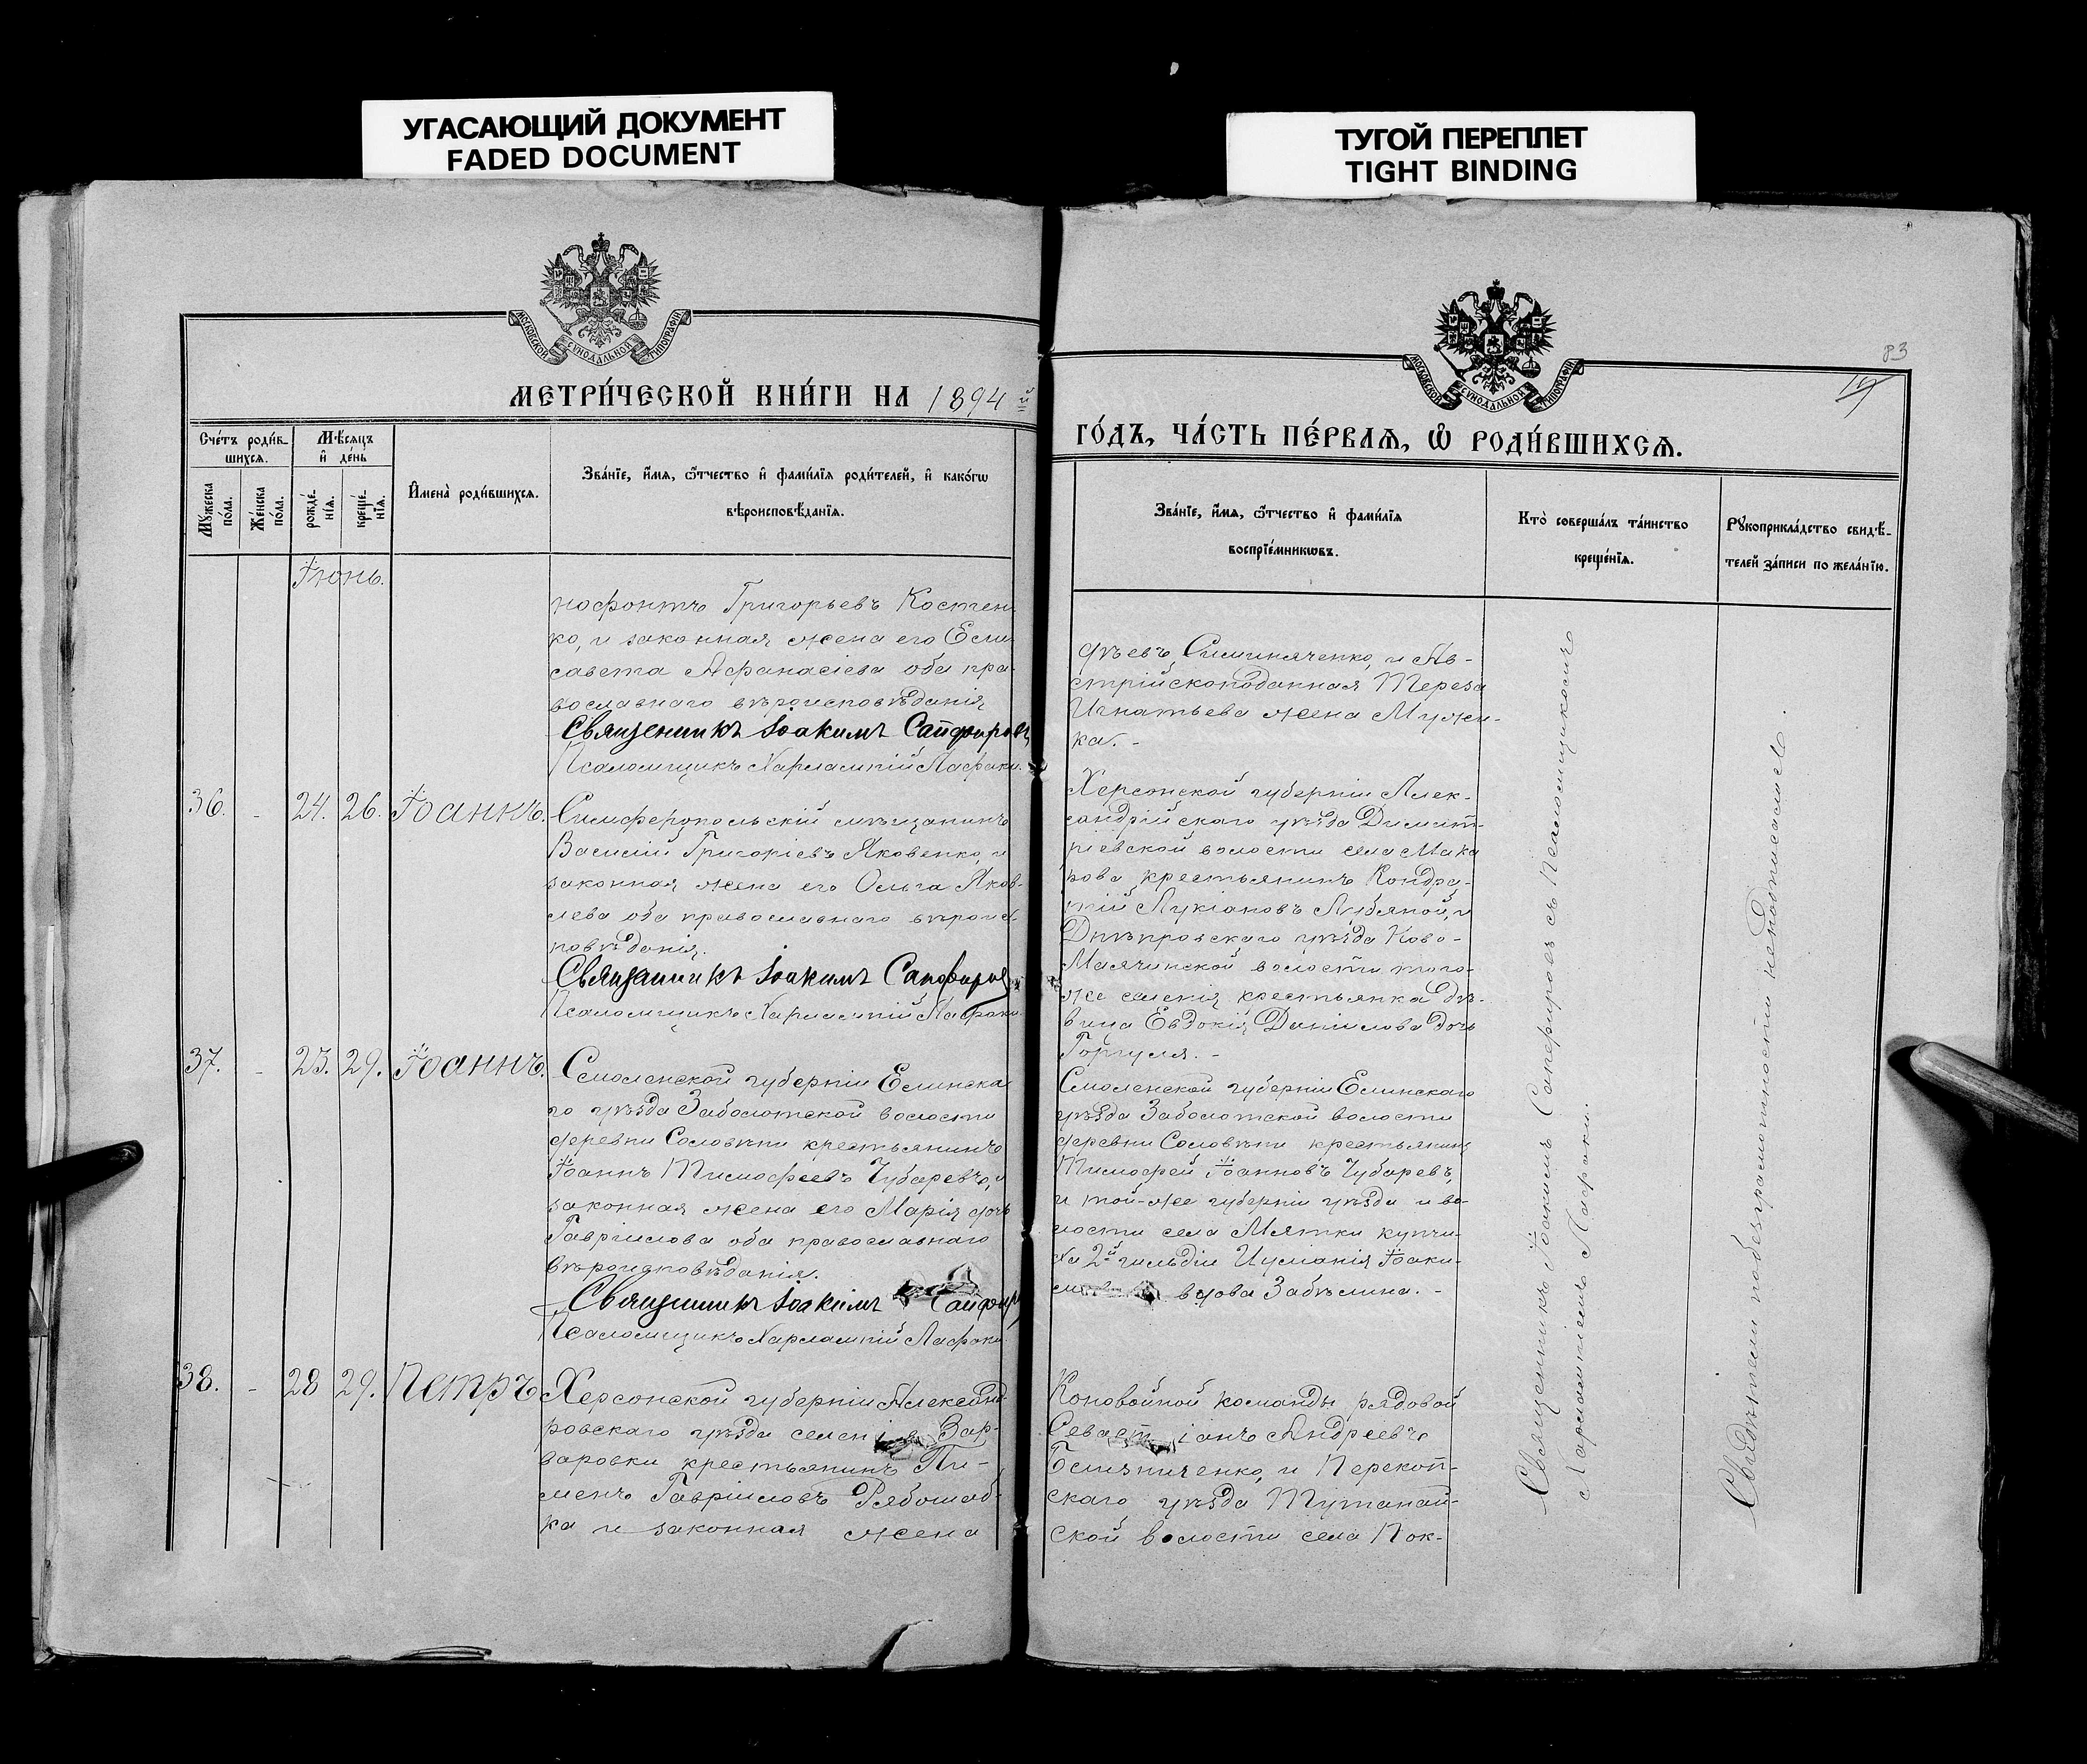 УГАСАЮЩИЙ ДОКУМЕНТ
FADED DOCUMENT
ТУГОЙ ПЕРЕПЛЕТ
TIGHT BINDING
МОСКОВСКОЙ СѴНОДАЛЬНОЙ ТИПОГРАФІИ
МЕТРИ́ЧЕСКОЙ КНИ́ГИ НА 1894й
Сче́тъ роди́в-
шихся.
Мѣ́сяцъ
и де́нь
Мꙋ́жеска
по́ла.
Же́нска
по́ла.
рожде́-
нїя.
креще́-
нїя.
Имена̀ роди́вшихся.
Зва́нїе, и́мя, ѻ҆́тчество и фами́лїя роди́телей, и како́гѡ
вѣроисповѣ́данїя.
Іюнь.
нофонтъ Григорьевъ Костен-
ко, и законная жена его Ели-
савета Афанасіева оба пра-
вославнаго вѣроисповѣданія
Священникъ Іоакимъ Сапфировъ
Псаломщикъ Харлампій Лафаки.
36. - 24. 26. Іоаннъ.
Симферопольскій мѣщанинъ
Василій Григоріевъ Яковенко, и
законная жена его Ольга Яков-
лева оба православнаго вѣроис-
повѣданія.
Священникъ Іоакимъ Сапфировъ
Псаломщикъ Харлампій Лафаки.
37. - 23. 29. Іоаннъ.
Смоленской губерніи Елинска-
го уѣзда Заболотской волости
деревни Соловѣни крестьянинъ
Іоаннъ Тимофеевъ Чубаревъ, и
законная жена его Марія дочь
Гавріилова оба православнаго
вѣроисповѣданія.
Священникъ Іоакимъ Сапфир
Псаломщикъ Харлампій Лафаки
38. - 28 29. Петръ
Херсонской губерніи Александ-
ровскаго уѣзда селенія Вар-
варовки крестьянинъ Пи-
менъ Гавріиловъ Рябошап-
ка и законная жена
МОСКОВСКОЙ СѴНОДАЛЬНОЙ ТИПОГРАФІИ
83
ГО́ДЪ, ЧА́СТЬ ПЕ́РВАЯ, Ѡ҆ РОДИ́ВШИХСЯ.
Зва́нїе, и́мя, ѻ҆́тчество и фами́лїя
воспрїе́мникѡвъ.
Кто̀ соверша́лъ та́инство
креще́нїя.
Рꙋкоприкла́дство свидѣ́-
телей за́писи по жела́нїю.
фѣевъ Симиняченко, и Ав-
стрійскоподанная Тереза
Игнатьева жена Мужи-
ка. -
Херсонской губерніи Алек-
сандрійскаго уѣзда Димит-
ріевской волости села Мака
рова крестьянинъ Кондра-
тій Лукіановъ Лубяной, и
Днѣпровскаго уѣзда Ново-
Маячинской волости того-
же селенія крестьянка дѣ-
вица Евдокія Даніилова дочь
Горгуля. -
Смоленской губерніи Елинскаго
уѣзда Заболотской волости
деревни Соловѣни крестьянинъ
Тимофей Іоанновъ Чубаревъ,
и той-же губерніи уѣзда и во-
лости села Мятки купчи-
ха 2й гильдіи Иуліанія Іоаки-
мова вдова Забѣлина. -
Конвойной команды рядовой
Севастіанъ Андреевъ
Безизниченко, и Перекоп-
скаго уѣзда Тутанай-
ской волости села Пок-
Священникъ Іоакимъ Сапфировъ съ псаломщикомъ
Харлампіемъ Лафаки.
Свидѣтели по безграмотности неподписалсь.